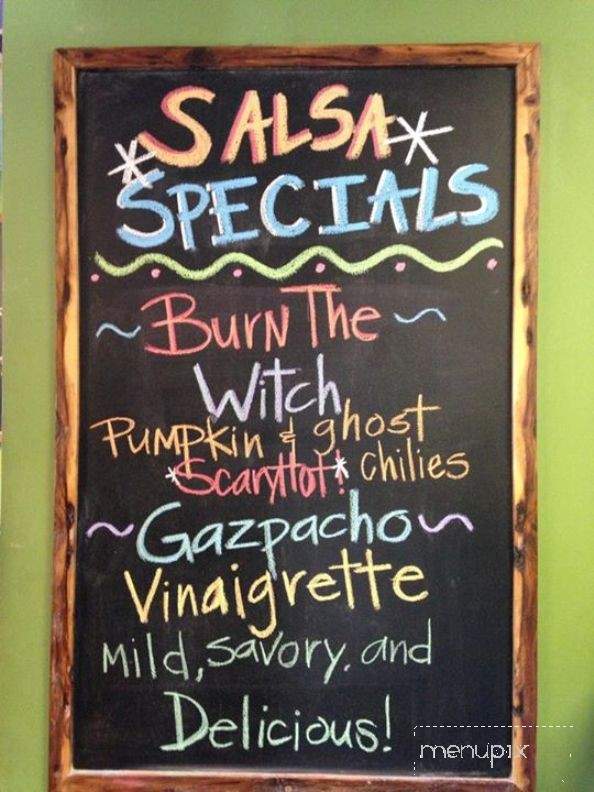 *SALSA*
SPECIALS
~Burn The~
Witch
Pumpkin & ghost
*ScaryHot!* chilies
~Gazpacho~
Vinaigrette
Mild, savory, and
Delicious!
menupix